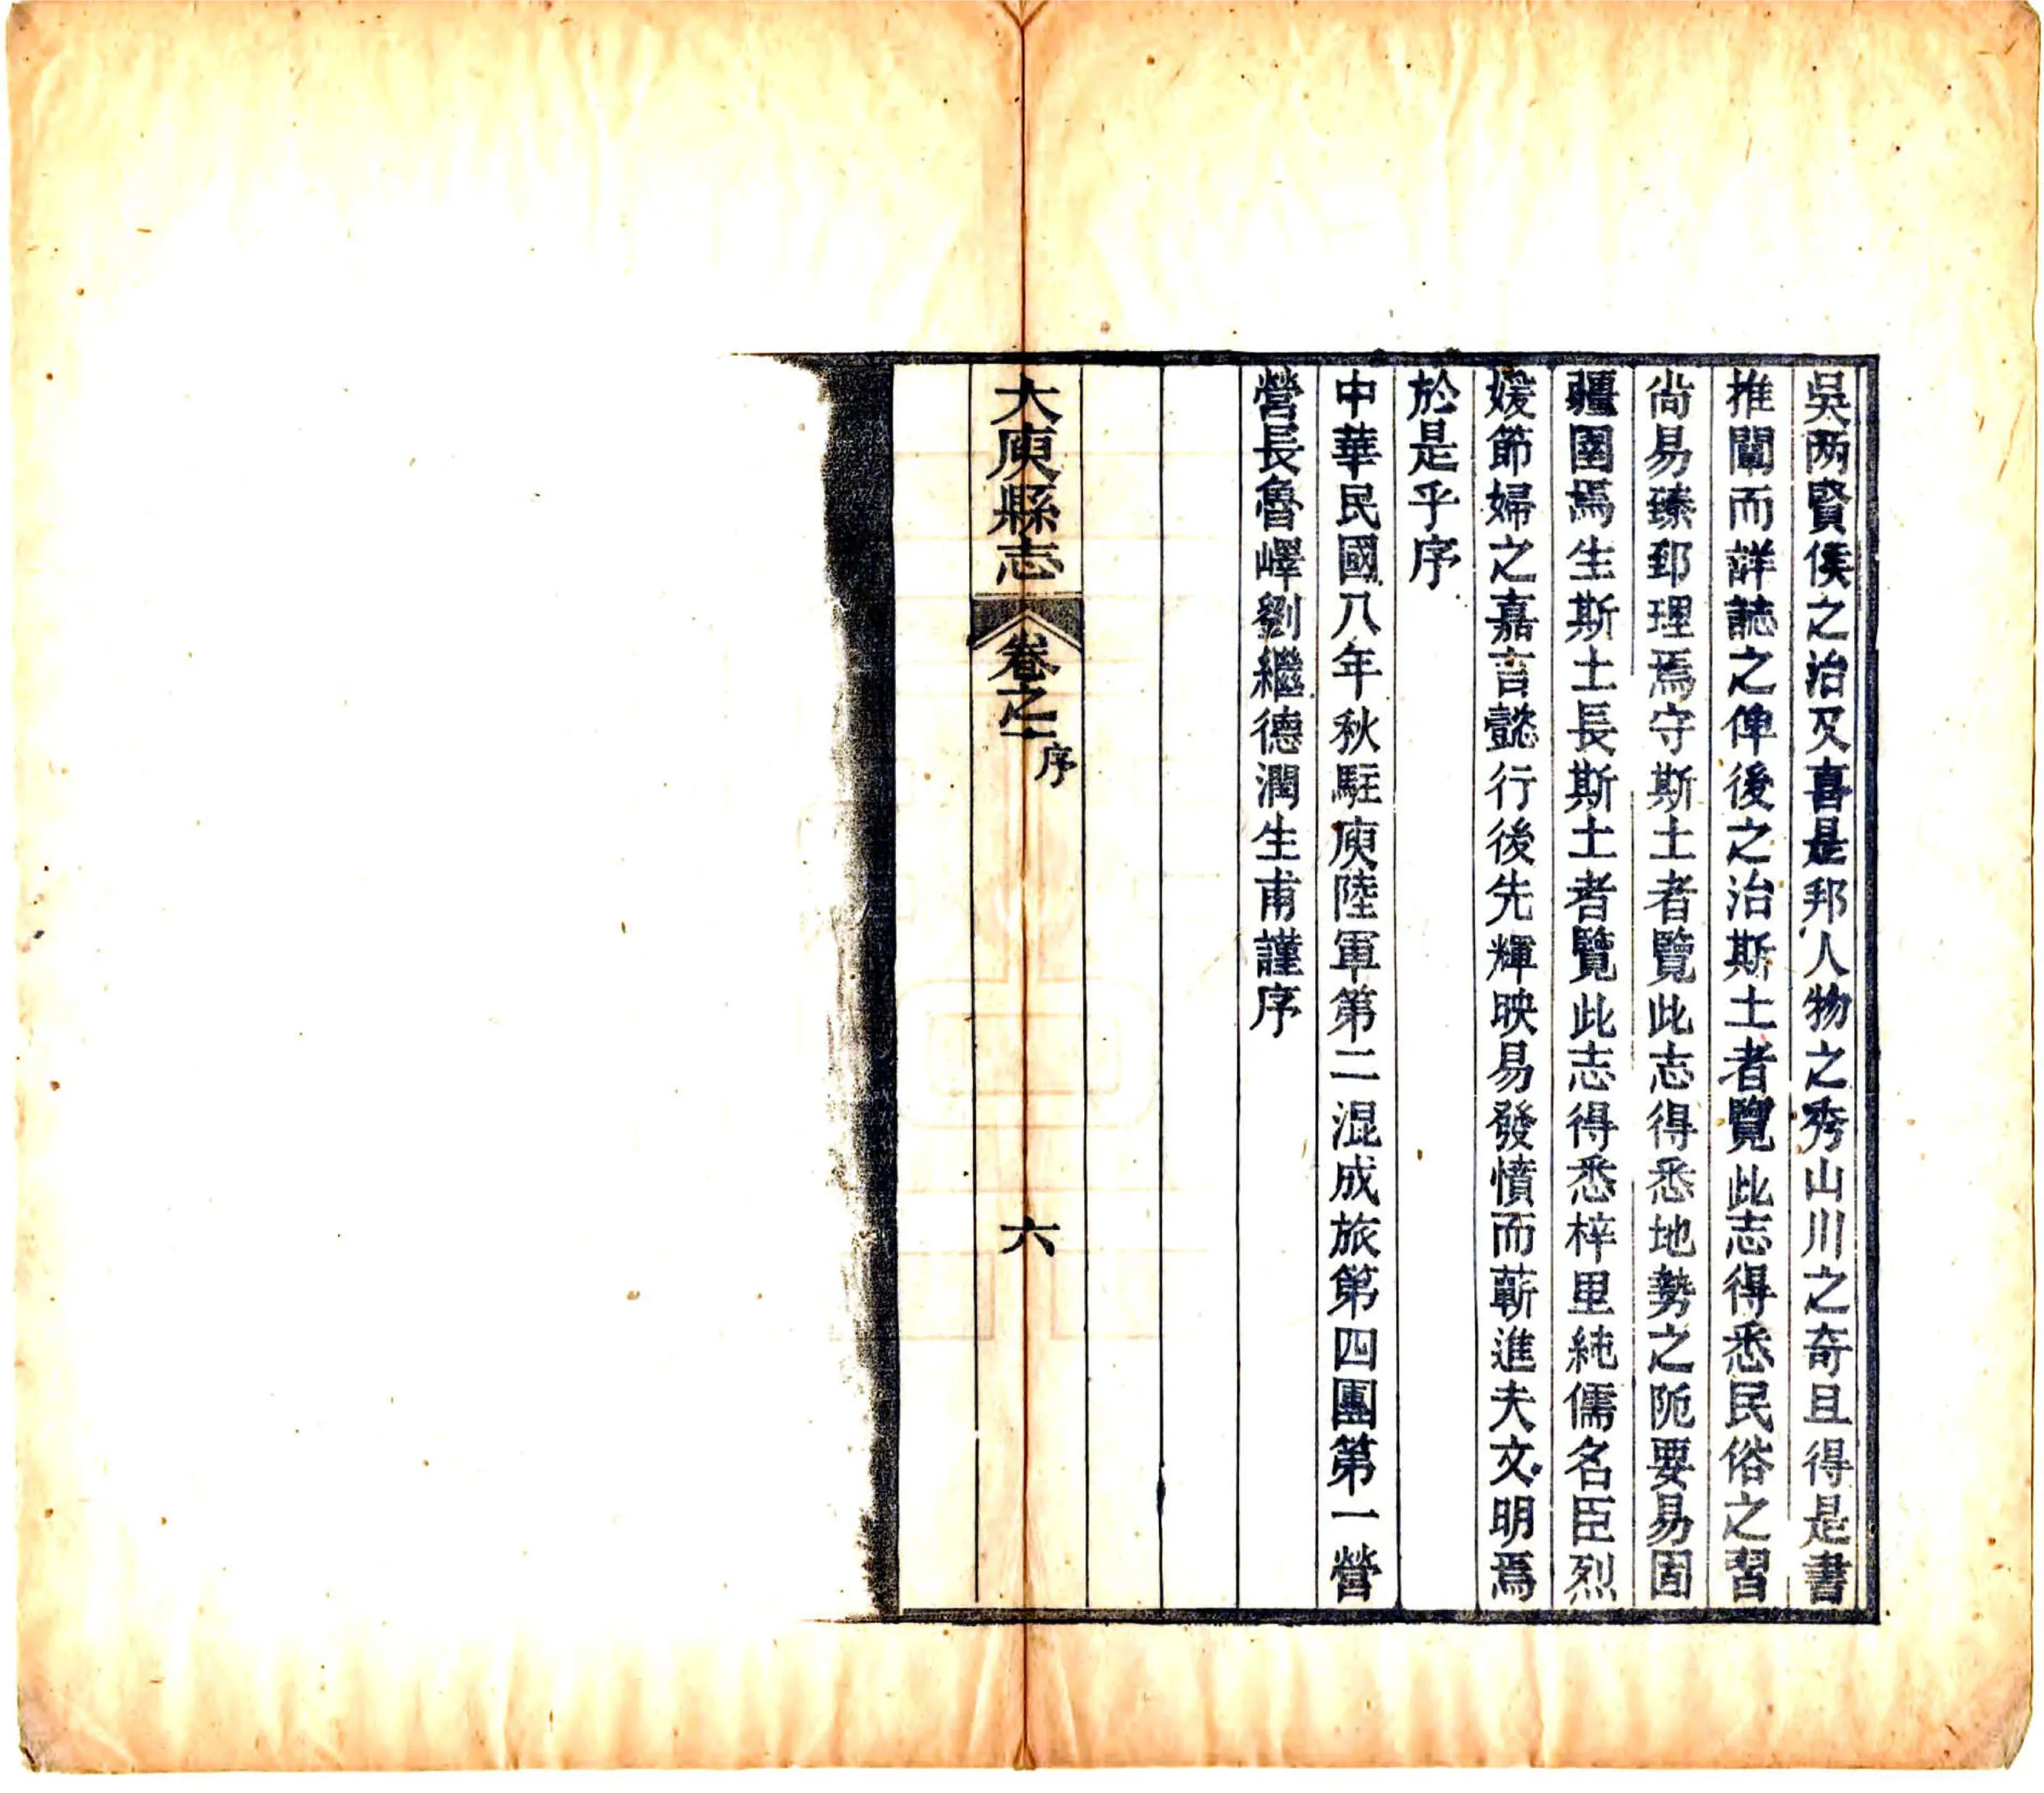 吳两賢侯之治又喜是邦人物之秀山川之奇且得是書
推闡而詳誌之俾後之治斯土者覽此志得悉民俗之習
尙易臻郅理焉守斯土者覽此志得悉地勢之阨要易固
疆圉焉生斯土長斯土者覽此志得悉梓里純儒名臣烈
媛節婦之嘉言懿行後先輝映易發憤而蘄進夫文明焉
於是乎序
中華民國八年秋駐庾陸軍第二混成旅第四團第一營
營長魯嶧劉繼德潤生甫謹序
大庾縣志
卷之一
序
六